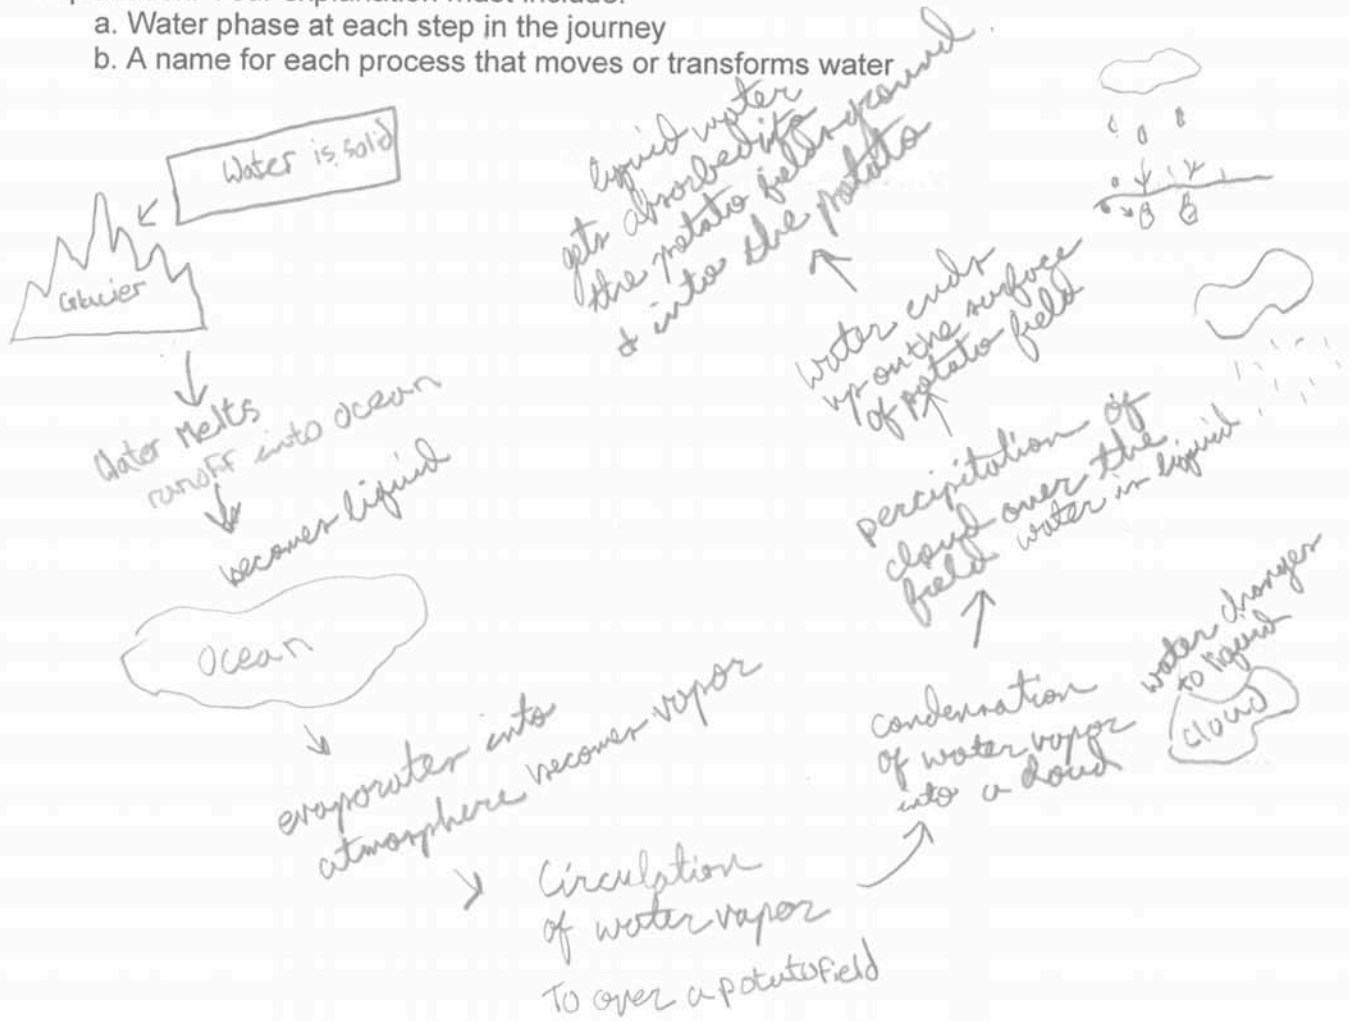 a. Water phase at each step in the journey
b. A name for each process that moves or transforms water
Water is solid
Glacier
Water Melts
runoff into Ocean
becomes liquid
Ocean
evaporates into
atmosphere becomes vapor
Circulation
of water vapor
To over a potato field
condensation
of water vapor
into a cloud
water changes
to liquid
cloud
percipitation of
cloud over the
field water is liquid
water ends
up on the surface
of potato field
liquid water
gets absorbed into
the potato fields ground
& into the potato